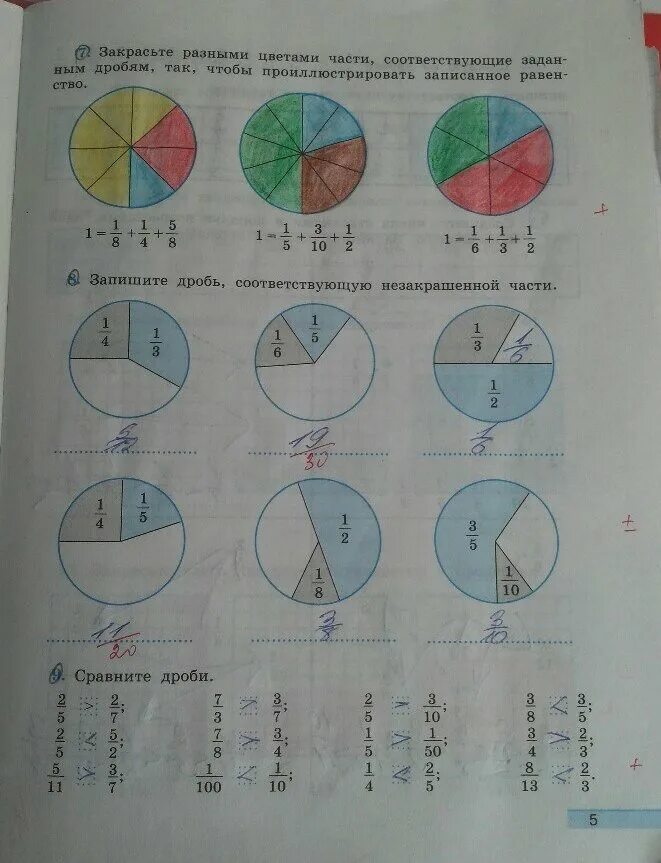 7. Закрасьте разными цветами части, соответствующие задан-
ным дробям, так, чтобы проиллюстрировать записанное равен-
ство.
1 = 1/8 + 1/4 + 5/8
1 = 1/5 + 3/10 + 1/2
1 = 1/6 + 1/3 + 1/2
+
8. Запишите дробь, соответствующую незакрашенной части.
1/4 1/3
1/6 1/5
1/3 1/6 1/2
5/12
19/30
1/6
1/4 1/5
1/2 1/8
3/5 1/10
±
11/20
3/8
3/10
9. Сравните дроби.
2/5 > 2/7; 7/3 > 3/7; 2/5 > 3/10; 3/8 < 3/5;
2/5 < 5/2; 7/8 > 3/4; 1/5 > 1/50; 3/4 > 2/3;
5/11 > 3/7; 1/100 < 1/10; 1/4 < 2/5; 8/13 < 2/3.
+
5